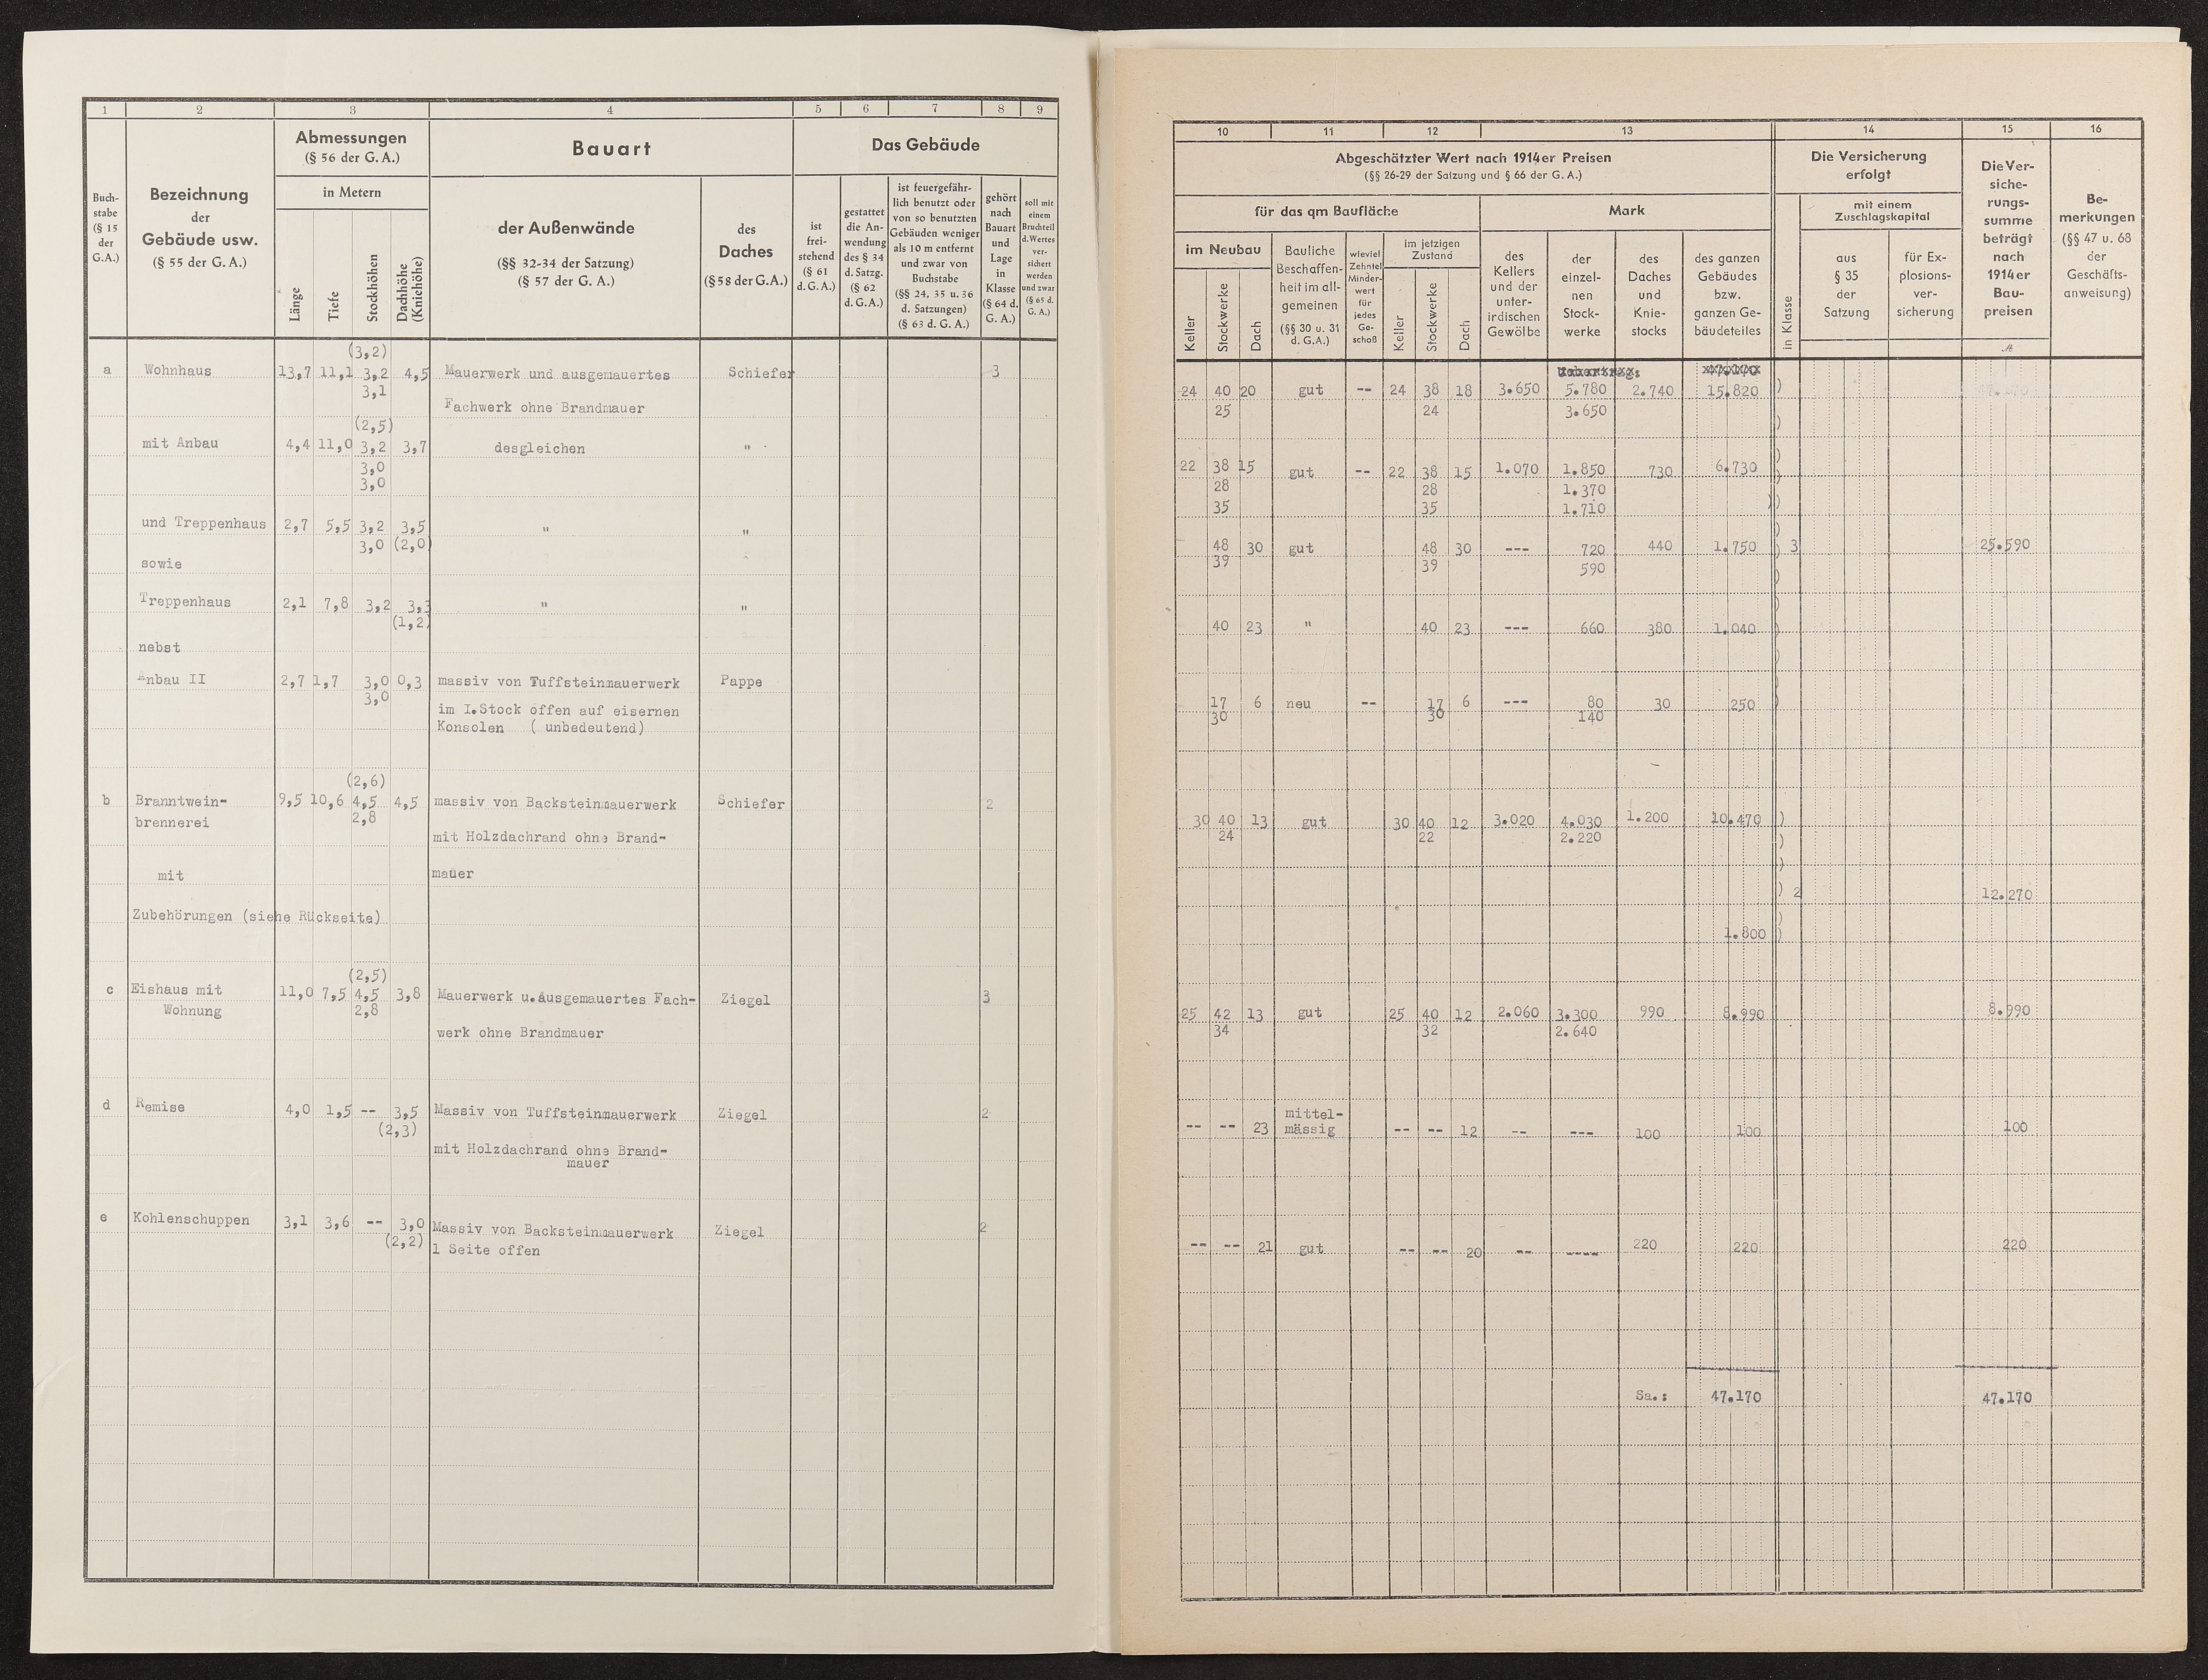 1 2 3 4 5 6 7 8 9
Buch-
stabe
(§ 15
der
G.A.)
Bezeichnung
der
Gebäude usw.
(§ 55 der G. A.)
Abmessungen
(§ 56 der G. A.)
in Metern
Länge
Tiefe
Stockhöhen
Dachhöhe
(Kniehöhe)
Bauart
der Außenwände
(§§ 32-34 der Satzung)
(§ 57 der G. A.)
des
Daches
(§ 58 der G.A.)
Das Gebäude
ist
frei-
stehend
(§ 61
d. G. A.)
gestattet
die An-
wendung
des § 34
d. Satzg.
(§ 62
d. G. A.)
ist feuergefähr-
lich benutzt oder
von so benutzten
Gebäuden weniger
als 10 m entfernt
und zwar von
Buchstabe
(§§ 24, 35 u. 36
d. Satzungen)
(§ 63 d. G. A.)
gehört
nach
Bauart
und
Lage
in
Klasse
(§ 64 d.
G. A.)
soll mit
einem
Bruchteil
d. Wertes
ver-
sichert
werden
und zwar
(§ 65 d.
G. A.)
(3,2)
a Wohnhaus 13,7 11,1 3,2 4,5 Mauerwerk und ausgemauertes Schiefer 3
3,1
Fachwerk ohne Brandmauer
(2,5)
mit Anbau 4,4 11,0 3,2 3,7 desgleichen "
3,0
3,0
und Treppenhaus 2,7 5,5 3,2 3,5 " "
3,0 (2,0)
sowie
Treppenhaus 2,1 7,8 3,2 3,3 " "
(1,2)
nebst
Anbau II 2,7 1,7 3,0 0,3 massiv von Tuffsteinmauerwerk Pappe
3,0
im I.Stock offen auf eisernen
Konsolen ( unbedeutend)
(2,6)
b Branntwein- 9,5 10,6 4,5 4,5 massiv von Backsteinmauerwerk Schiefer 2
brennerei 2,8
mit Holzdachrand ohne Brand-
mit mauer
Zubehörungen (siehe Rückseite)
(2,5)
c Eishaus mit 11,0 7,5 4,5 3,8 Mauerwerk u.ausgemauertes Fach- Ziegel 3
Wohnung 2,8
werk ohne Brandmauer
d Remise 4,0 1,5 -- 3,5 Massiv von Tuffsteinmauerwerk Ziegel 2
(2,3)
mit Holzdachrand ohne Brand-
mauer
e Kohlenschuppen 3,1 3,6 -- 3,0 Massiv von Backsteinmauerwerk Ziegel 2
(2,2) 1 Seite offen
10 11 12 13 14 15 16
Abgeschätzter Wert nach 1914er Preisen
(§§ 26-29 der Satzung und § 66 der G. A.)
für das qm Baufläche
Mark
im Neubau
Keller
Stockwerke
Dach
Bauliche
Beschaffen-
heit im all-
gemeinen
(§§ 30 u. 31
d. G.A.)
wieviel
Zehntel
Minder-
wert
für
jedes
Ge-
schoß
im jetzigen
Zustand
Keller
Stockwerke
Dach
des
Kellers
und der
unter-
irdischen
Gewölbe
der
einzel-
nen
Stock-
werke
des
Daches
und
Knie-
stocks
des ganzen
Gebäudes
bzw.
ganzen Ge-
bäudeteiles
Die Versicherung
erfolgt
in Klasse
mit einem
Zuschlagskapital
aus
§ 35
der
Satzung
für Ex-
plosions-
ver-
sicherung
Die Ver-
siche-
rungs-
summe
beträgt
nach
1914er
Bau-
preisen
M
Be-
merkungen
(§§ 47 u. 68
der
Geschäfts-
anweisung)
Uebertrag: 47.170
24 40 20 gut -- 24 38 18 3.650 5.780 2.740 15.820 )
25 24 3.650
)
22 38 15 gut -- 22 38 15 1.070 1.850 730 6.730 )
28 28 1.370
35 35 1.710 )
48 30 gut 48 30 --- 720 440 1.750 ) 3 25.590
39 39 590
40 23 " 40 23 --- 660 380 1.040 )
17 6 neu -- 17 6 --- 80 30 250 )
30 30 140
30 40 13 gut 30 40 12 3.020 4.030 1.200 10.470 )
24 22 2.220 )
)
) 2 12.270
1.800 )
25 42 13 gut 25 40 12 2.060 3.300 990 8.990 8.990
34 32 2.640
mittel-
-- -- 23 mässig -- -- 12 -- --- 100 100 100
-- -- 21 gut -- -- 20 -- ---- 220 220 220
Sa.: 47.170 47.170